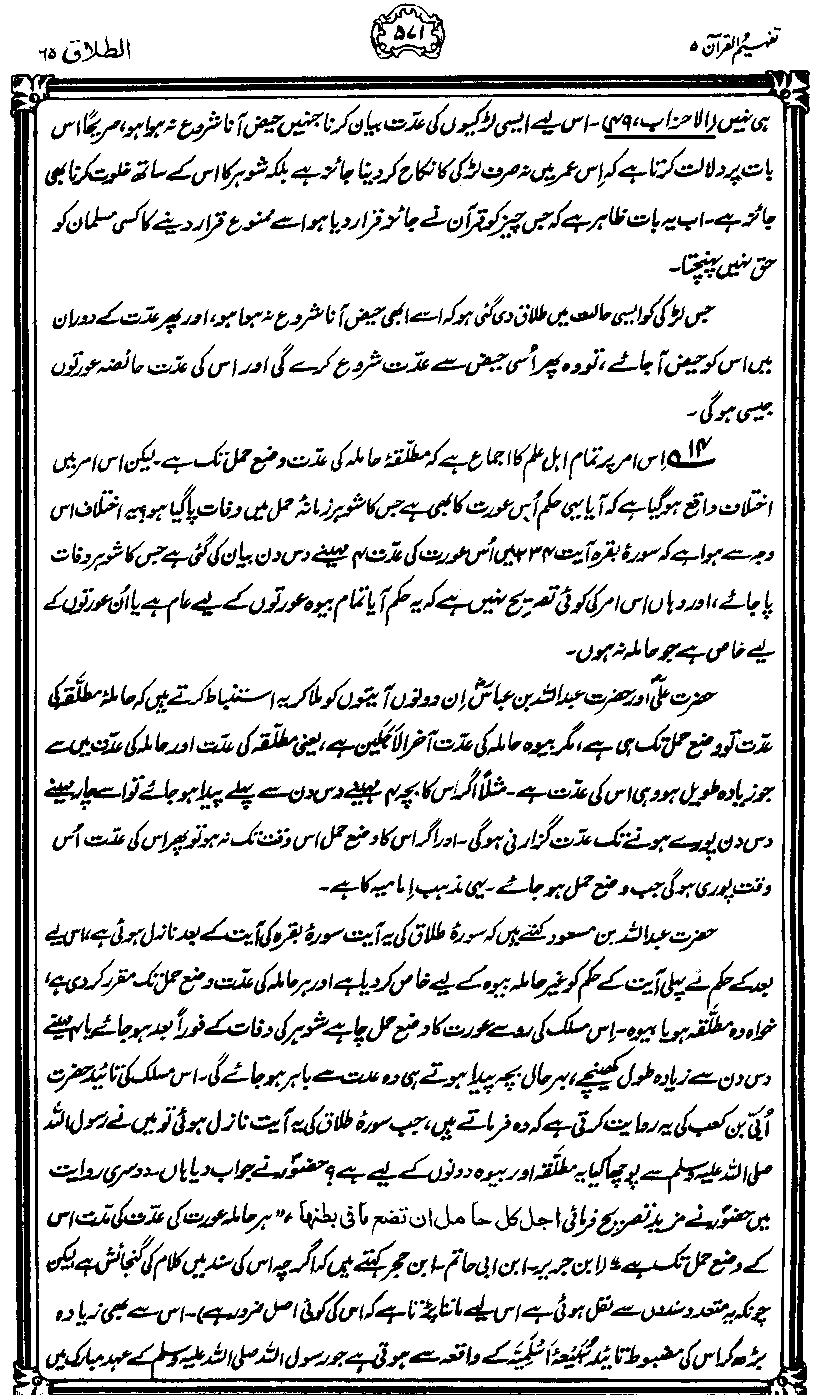 تفہیم القرآن ۵
۵۷۱
الطلاق ۶۵
ہی نہیں (الاحزاب، ۴۹)۔ اس لیے ایسی لڑکیوں کی عدّت بیان کرنا جنہیں حیض آنا شروع نہ ہوا ہو، صریحًا اس
بات پر دلالت کرتا ہے کہ اس عمر میں نہ صرف لڑکی کا نکاح کر دینا جائز ہے بلکہ شوہر کا اس کے ساتھ خلوت کرنا بھی
جائز ہے۔ اب یہ بات ظاہر ہے کہ جس چیز کو قرآن نے جائز قرار دیا ہو اسے ممنوع قرار دینے کا کسی مسلمان کو
حق نہیں پہنچتا۔
جس لڑکی کو ایسی حالت میں طلاق دی گئی ہو کہ اسے ابھی حیض آنا شروع نہ ہوا ہو، اور پھر عدّت کے دوران
میں اس کو حیض آ جائے، تو وہ پھر اُسی حیض سے عدّت شروع کرے گی اور اس کی عدّت حائضہ عورتوں
جیسی ہوگی۔
۱۴؎ اس امر پر تمام اہل علم کا اجماع ہے کہ مطلّقۂ حاملہ کی عدّت وضع حمل تک ہے۔ لیکن اس امر میں
اختلاف واقع ہو گیا ہے کہ آیا یہی حکم اُس عورت کا بھی ہے جس کا شوہر زمانۂ حمل میں وفات پا گیا ہو؟ یہ اختلاف اس
وجہ سے ہوا ہے کہ سورۂ بقرہ آیت ۲۳۴ میں اُس عورت کی عدّت ۴ مہینے دس دن بیان کی گئی ہے جس کا شوہر وفات
پا جائے، اور وہاں اس امر کی کوئی تصریح نہیں ہے کہ یہ حکم آیا تمام بیوہ عورتوں کے لیے عام ہے یا اُن عورتوں کے
لیے خاص ہے جو حاملہ نہ ہوں۔
حضرت علیؓ اور حضرت عبداللہ بن عباسؓ اِن دونوں آیتوں کو ملا کر یہ استنباط کرتے ہیں کہ حاملۂ مطلّقہ کی
عدّت تو وضع حمل تک ہی ہے، مگر بیوہ حاملہ کی عدّت آخر الاَجَلَین ہے، یعنی مطلّقہ کی عدّت اور حاملہ کی عدّت میں سے
جو زیادہ طویل ہو وہی اس کی عدّت ہے۔ مثلاً اگر اس کا بچہ ۴ مہینے دس دن سے پہلے پیدا ہو جائے تو اسے چار مہینے
دس دن پورے ہونے تک عدّت گزارنی ہوگی۔ اور اگر اس کا وضع حمل اس وقت تک نہ ہو تو پھر اس کی عدّت اُس
وقت پوری ہوگی جب وضع حمل ہو جائے۔ یہی مذہب اِمامیہ کا ہے۔
حضرت عبداللہ بن مسعود کہتے ہیں کہ سورۂ طلاق کی یہ آیت سورۂ بقرہ کی آیت کے بعد نازل ہوئی ہے، اس لیے
بعد کے حکم نے پہلی آیت کے حکم کو غیر حاملہ بیوہ کے لیے خاص کر دیا ہے اور ہر حاملہ کی عدّت وضع حمل تک مقرر کر دی ہے،
خواہ وہ مطلّقہ ہو یا بیوہ۔ اس مسلک کی رو سے عورت کا وضع حمل چاہے شوہر کی وفات کے فوراً بعد ہو جائے یا ۴ مہینے
دس دن سے زیادہ طول کھینچے، بہرحال بچہ پیدا ہوتے ہی وہ عدت سے باہر ہو جائے گی۔ اس مسلک کی تائید حضرت
اُبَیّ بن کعب کی یہ روایت کرتی ہے کہ وہ فرماتے ہیں، جب سورۂ طلاق کی یہ آیت نازل ہوئی تو میں نے رسول اللہ
صلی اللہ علیہ وسلم سے پوچھا کیا یہ مطلّقہ اور بیوہ دونوں کے لیے ہے؟ حضورؐ نے جواب دیا ہاں۔ دوسری روایت
میں حضورؐ نے مزید تصریح فرمائی اجل کل حامل ان تضع مافی بطنها، "ہر حاملہ عورت کی عدّت کی مدّت اس
کے وضع حمل تک ہے" (ابن جریر۔ ابن ابی حاتم۔ ابن حجر کہتے ہیں کہ اگرچہ اس کی سند میں کلام کی گنجائش ہے لیکن
چونکہ یہ متعدد سندوں سے نقل ہوئی ہے اس لیے ماننا پڑتا ہے کہ اس کی کوئی اصل ضرور ہے)۔ اس سے بھی زیادہ
بڑھ کر اس کی مضبوط تائید سُبَیْعَۂ اَسْلَمِیَّہ کے واقعہ سے ہوتی ہے جو رسول اللہ صلی اللہ علیہ وسلم کے عہد مبارک میں